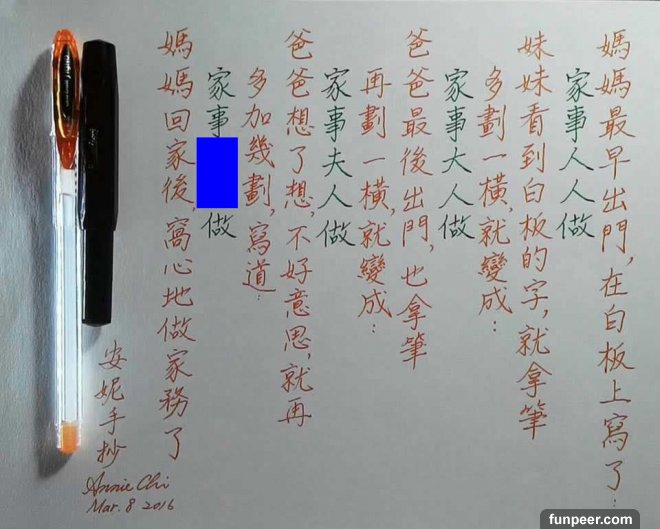 媽媽最早出門,在白板上寫了:
家事人人做
妹妹看到白板的字,就拿筆
多劃一橫,就變成:
家事大人做
爸爸最後出門,也拿筆
再劃一橫,就變成:
家事夫人做
爸爸想了想,不好意思,就再
多加幾劃,寫道:
家事做
媽媽回家後,窩心地做家務了
安妮手抄
Annie Chi
Mar. 8 2016
funpeer.com